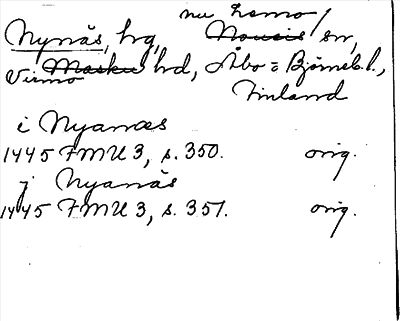 nu Lemo/
Nynäs, hg, Nousis sn,
Virmo Masku hd, Åbo = Björneb. l.,
Finland
i Nyanæs
1445 FMU 3, s. 350. orig.
j Nyanäs
1445 FMU 3, s. 351. orig.